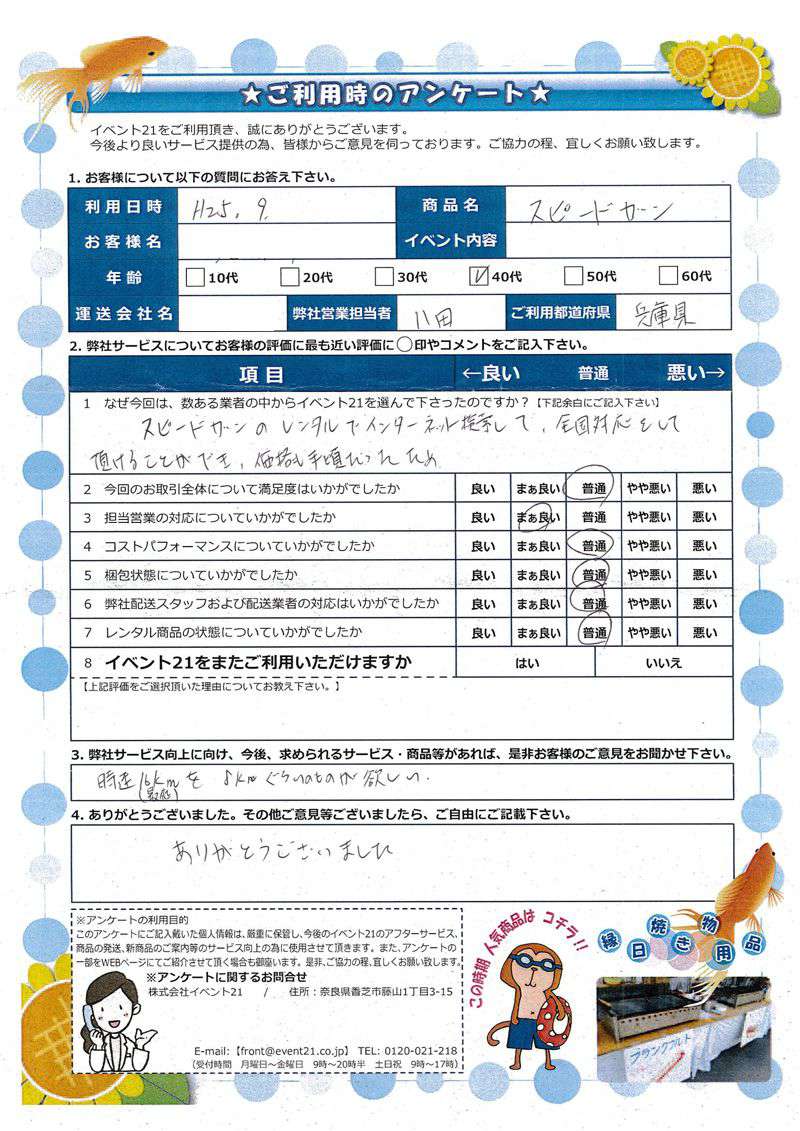 ★ご利用時のアンケート★
イベント21をご利用頂き、誠にありがとうございます。
今後より良いサービス提供の為、皆様からご意見を伺っております。ご協力の程、宜しくお願い致します。
1. お客様について以下の質問にお答え下さい。
利用日時 H25. 9. 商品名 スピードガン
お客様名 イベント内容
年齢 10代 20代 30代 40代 50代 60代
運送会社名 弊社営業担当者 八田 ご利用都道府県 兵庫県
2. 弊社サービスについてお客様の評価に最も近い評価に○印やコメントをご記入下さい。
項目 ←良い 普通 悪い→
1 なぜ今回は、数ある業者の中からイベント21を選んで下さったのですか?【下記余白にご記入下さい】
スピードガンのレンタルでインターネット検索して、全国対応をして
頂けることができ、価格も手頃だったため
2 今回のお取引全体について満足度はいかがでしたか 良い まぁ良い 普通 やや悪い 悪い
3 担当営業の対応についていかがでしたか 良い まぁ良い 普通 やや悪い 悪い
4 コストパフォーマンスについていかがでしたか 良い まぁ良い 普通 やや悪い 悪い
5 梱包状態についていかがでしたか 良い まぁ良い 普通 やや悪い 悪い
6 弊社配送スタッフおよび配送業者の対応はいかがでしたか 良い まぁ良い 普通 やや悪い 悪い
7 レンタル商品の状態についていかがでしたか 良い まぁ良い 普通 やや悪い 悪い
8 イベント21をまたご利用いただけますか はい いいえ
【上記評価をご選択頂いた理由についてお教え下さい。】
3. 弊社サービス向上に向け、今後、求められるサービス・商品等があれば、是非お客様のご意見をお聞かせ下さい。
時速16kmを 8kmぐらいのものが欲しい.
(最低)
4. ありがとうございました。その他ご意見等ございましたら、ご自由にご記載下さい。
ありがとうございました
※アンケートの利用目的
このアンケートにご記入戴いた個人情報は、厳重に保管し、今後のイベント21のアフターサービス、
商品の発送、新商品のご案内等のサービス向上の為に使用させて頂きます。また、アンケートの
一部をWEBページにてご紹介させて頂く場合も御座います。是非、ご協力の程、宜しくお願い致します。
※アンケートに関するお問合せ
株式会社イベント21 / 住所:奈良県香芝市藤山1丁目3-15
E-mail:【front@event21.co.jp】 TEL: 0120-021-218
(受付時間 月曜日～金曜日 9時～20時半 土日祝 9時～17時)
この時期 人気商品は コチラ!!
縁日焼き物用品
フランクフルト